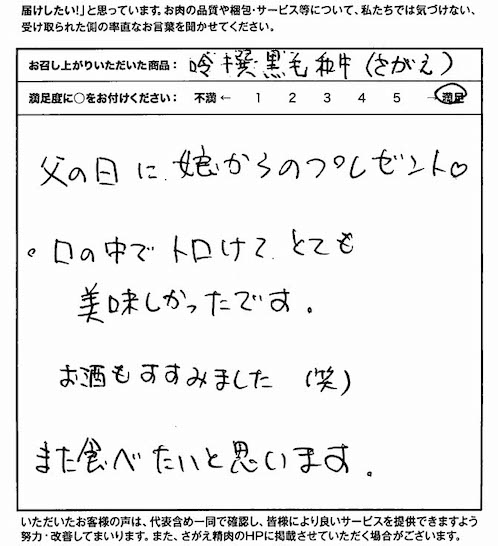 届けしたい！」と思っています。お肉の品質や梱包・サービス等について、私たちでは気づけない、
受け取られた側の率直なお言葉を聞かせてください。
お召し上がりいただいた商品： 吟撰黒毛和牛（さがえ）
満足度に○をお付けください： 不満 ← 1 2 3 4 5 → 満足
父の日に、娘からのプレゼント♡
。口の中でトロけて、とても
美味しかったです。
お酒もすすみました（笑）
また食べたいと思います。
いただいたお客様の声は、代表含め一同で確認し、皆様により良いサービスを提供できますよう
努力・改善してまいります。また、さがえ精肉のHPに掲載させていただく場合がございます。